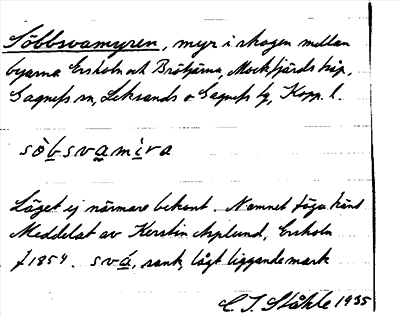 Söbbsvamyren, myr i skogen mellan
byarna Ersholn och Brötjärna, Mockfjärds kap.,
Gagnefs sn, Leksands o Gagnefs tg, Kopp. l.
söbsvamira
Läget ej närmare bekant. Namnet föga känt
Meddelat av Kerstin Asplund, Ersholn
f 1854. svá, sank, lågt liggande mark
C. I. Ståhle 1935